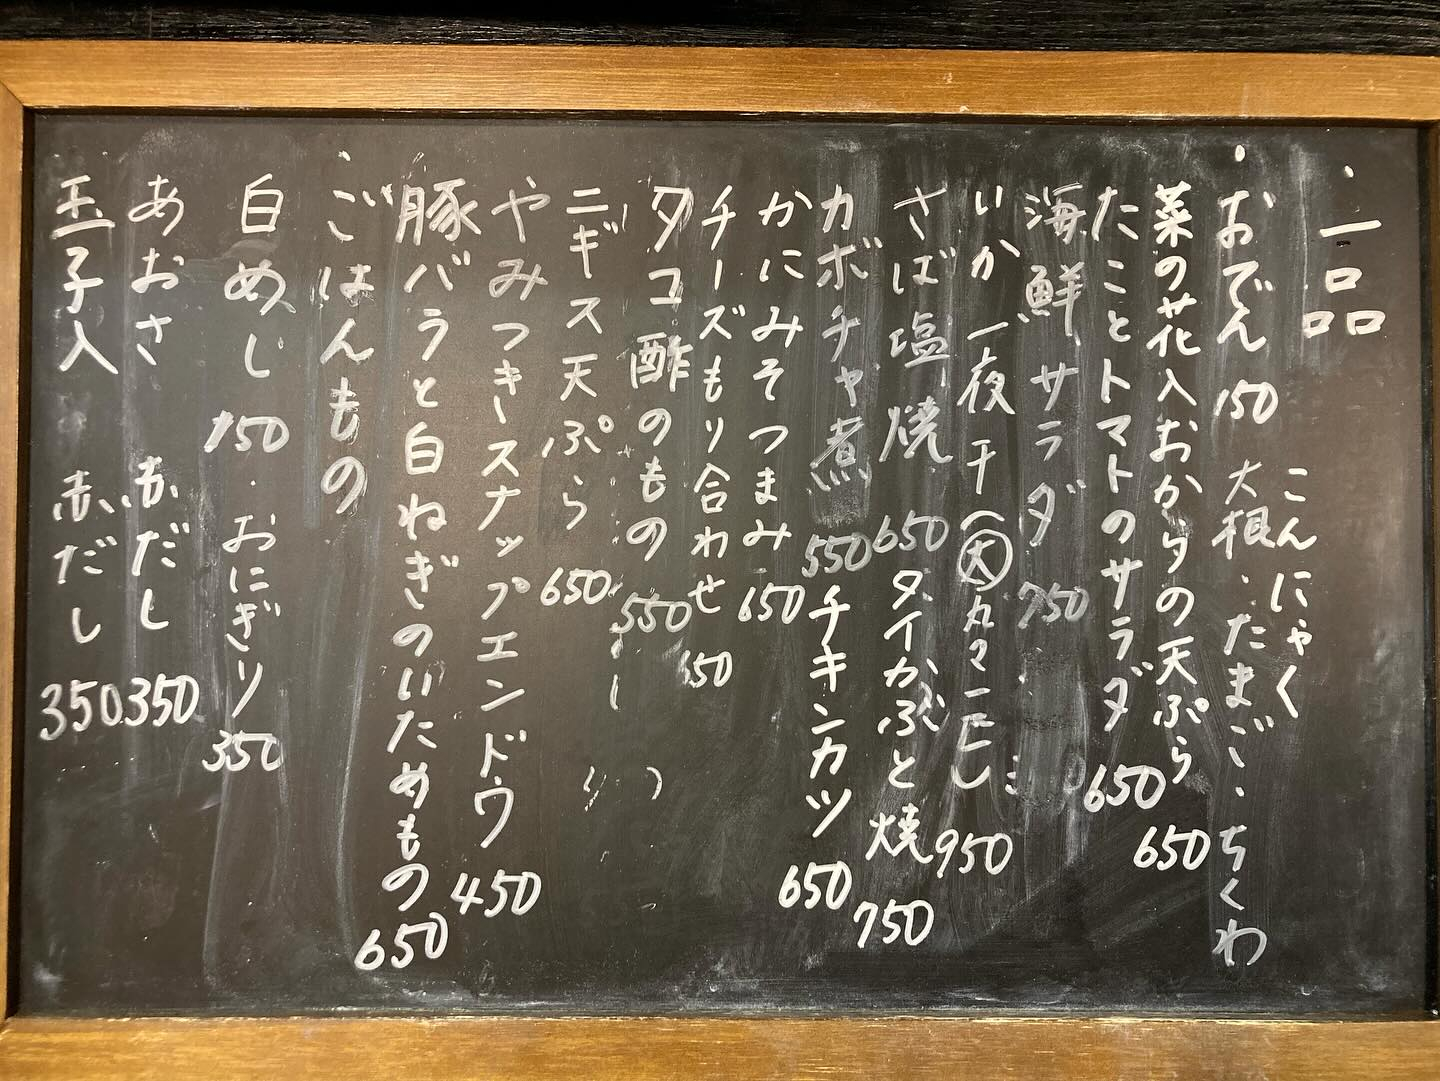 ・一品
・おでん 150 大根・たまご・ちくわ
こんにゃく
菜の花入おからの天ぷら 650
たことトマトのサラダ 650
海鮮サラダ 750
いか一夜干(大)丸々一匹 950
さば塩焼 650 タイかぶと焼 750
カボチャ煮 550 チキンカツ 650
かにみそつまみ 650
チーズもり合わせ 150
タコ酢のもの 550
ニギス天ぷら 650
やみつきスナップエンドウ 450
豚バラと白ねぎのいためもの 650
・ごはんもの
白めし 150・おにぎり 350
あおさ 赤だし 350
玉子入 赤だし 350